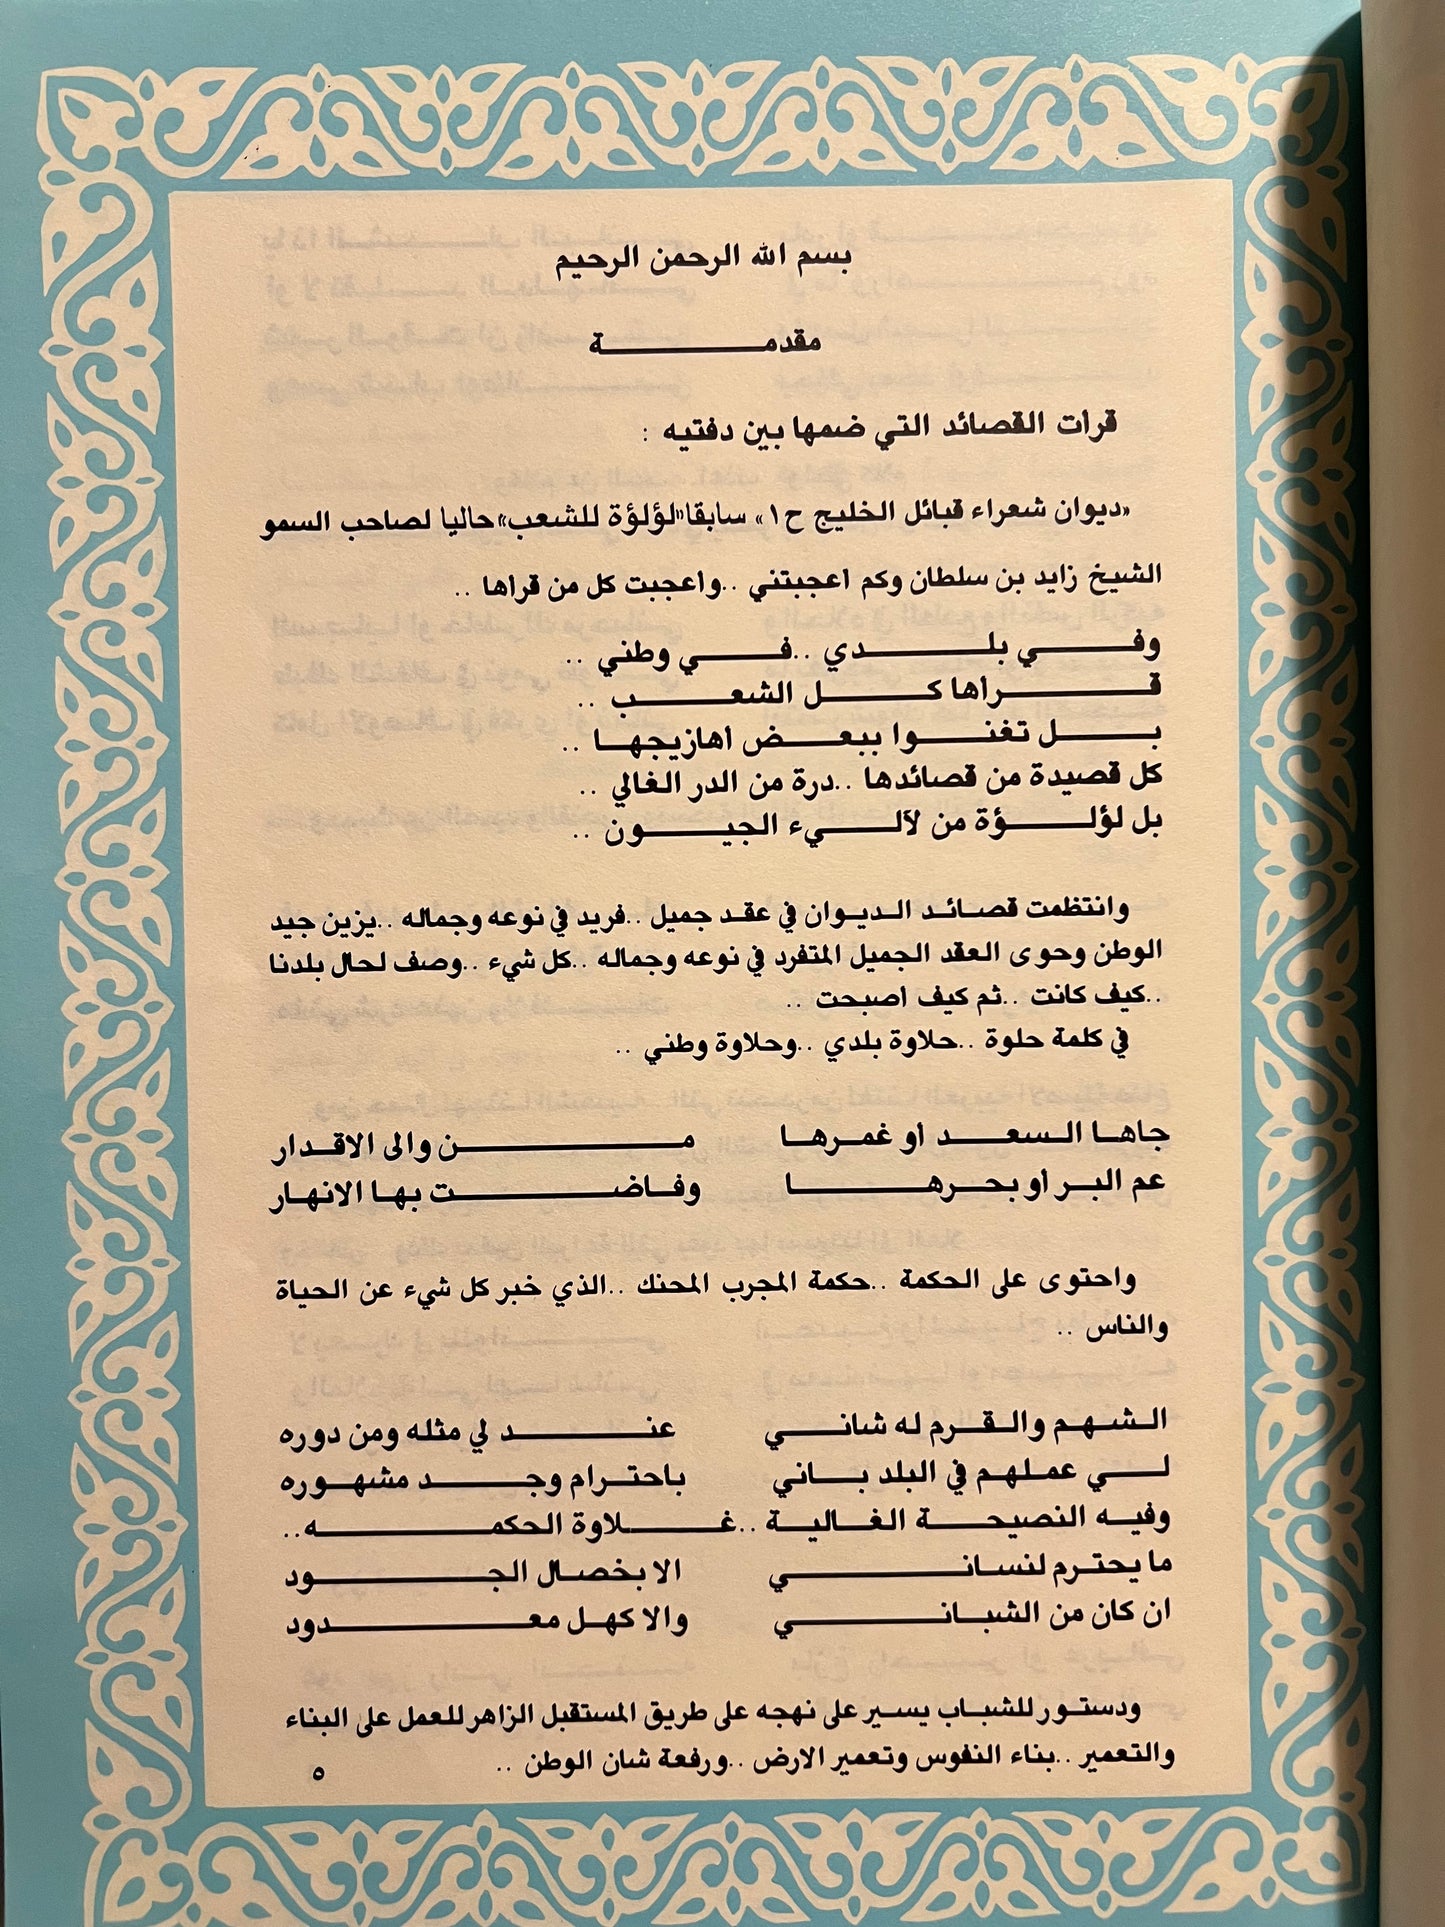 بسم الله الرحمن الرحيم
مقدمة
قرات القصائد التي ضمها بين دفتيه :
«ديوان شعراء قبائل الخليج ح١» سابقا «لؤلؤة للشعب» حاليا لصاحب السمو
الشيخ زايد بن سلطان وكم اعجبتني ..واعجبت كل من قراها ..
وفي بلدي ..في وطني ..
قراها كل الشعب ..
بل تغنوا ببعض اهازيجها ..
كل قصيدة من قصائدها ..درة من الدر الغالي ..
بل لؤلؤة من لآليء الجيون ..
وانتظمت قصائد الديوان في عقد جميل ..فريد في نوعه وجماله ..يزين جيد
الوطن وحوى العقد الجميل المتفرد في نوعه وجماله ..كل شيء ..وصف لحال بلدنا
..كيف كانت ..ثم كيف اصبحت ..
في كلمة حلوة ..حلاوة بلدي ..وحلاوة وطني ..
جاها السعد او غمرها من والى الاقدار
عم البر او بحرها وفاضت بها الانهار
واحتوى على الحكمة ..حكمة المجرب المحنك ..الذي خبر كل شيء عن الحياة
والناس ..
الشهم والقرم له شاني عند لي مثله ومن دوره
لي عملهم في البلد باني باحترام وجد مشهوره
وفيه النصيحة الغالية ..غلاوة الحكمه..
ما يحترم لنساني الا بخصال الجود
ان كان من الشباني والا كهل معدود
ودستور للشباب يسير على نهجه على طريق المستقبل الزاهر للعمل على البناء
والتعمير ..بناء النفوس وتعمير الارض ..ورفعة شان الوطن ..
٥